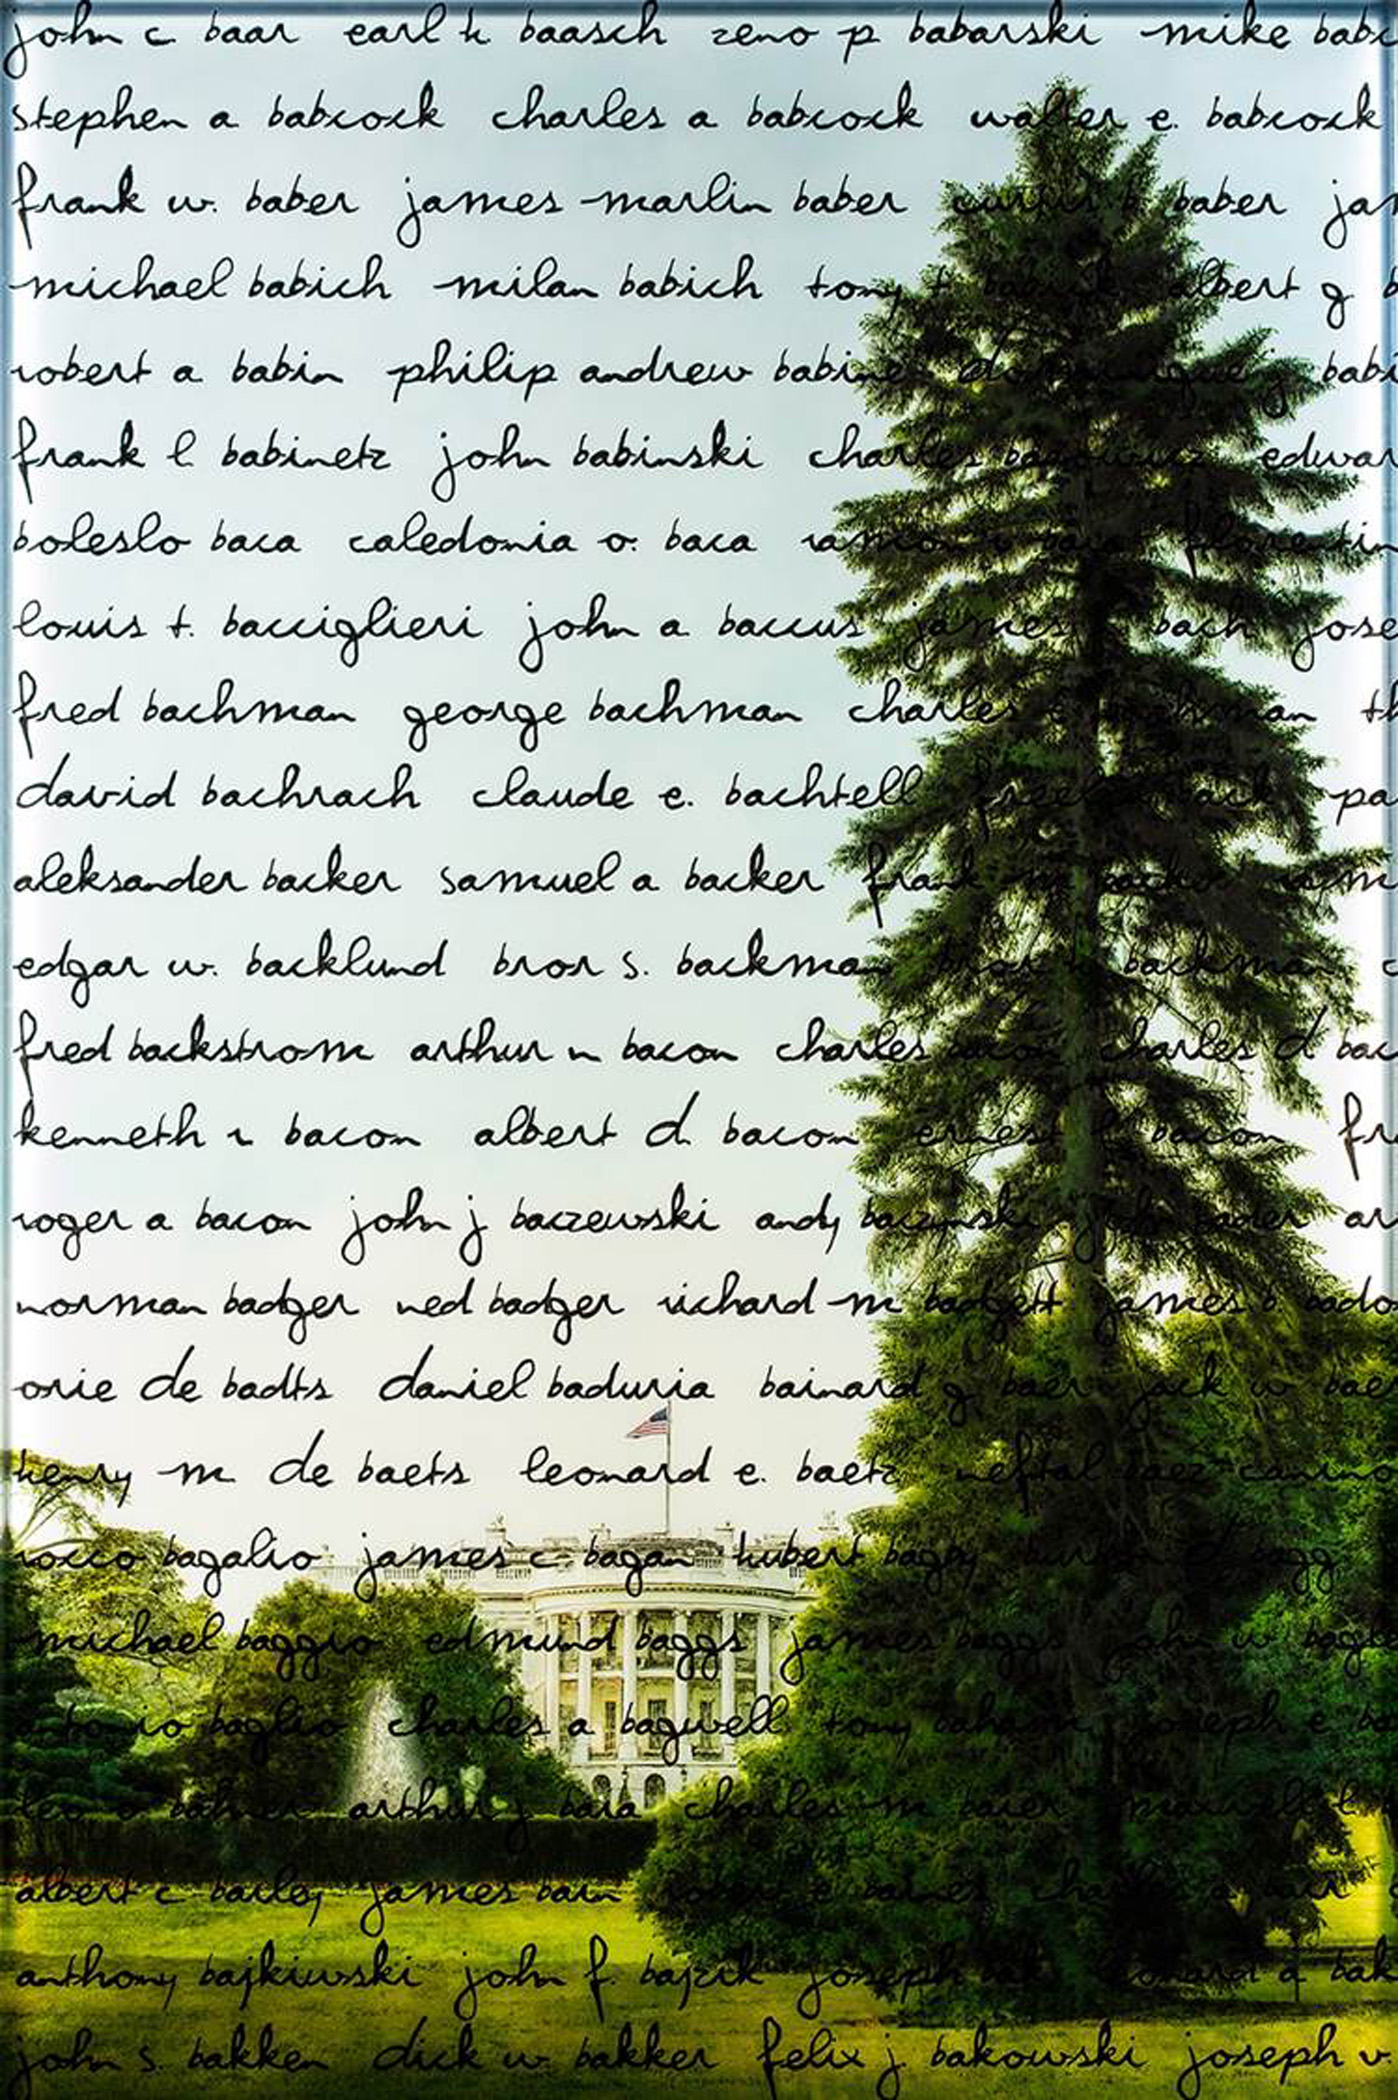 john c baar earl h baasch zeno p babarski mike
stephen a babcock charles a babcock walter e. babcock
frank w. baber james marlin baber curtis b baber
michael babich milan babich tony albert g
robert a babin philip andrew
frank l babinetz john babinski charles
boleslo baca caledonia o. baca
louis t. bacciglieri john a baccus james bach
fred bachman george bachman charles bachman
david bachrach claude e. bachtell
aleksander backer samuel a backer frank
edgar w. backlund bror s. backman backman
fred backstrom arthur n bacon charles bacon charles d
kenneth r bacon albert d. bacon ernest bacon
roger a bacon john j baczewski andy baczynski
norman badger ned badger richard m badgett james
orie de badts daniel baduria bainard g baer jack w
henry m de baets leonard e. baetz neftal baez
rocco bagalio james c bagan hubert bagby
michael baggio edmund baggs james john w
antonio baglio charles a bagwell tony joseph e
leo arthur j baia charles m baier
albert c bailey james bain
anthony bajkiwski john f. bajzik joseph leonard a
john s. bakken dick w. bakker felix j. bakowski joseph v.